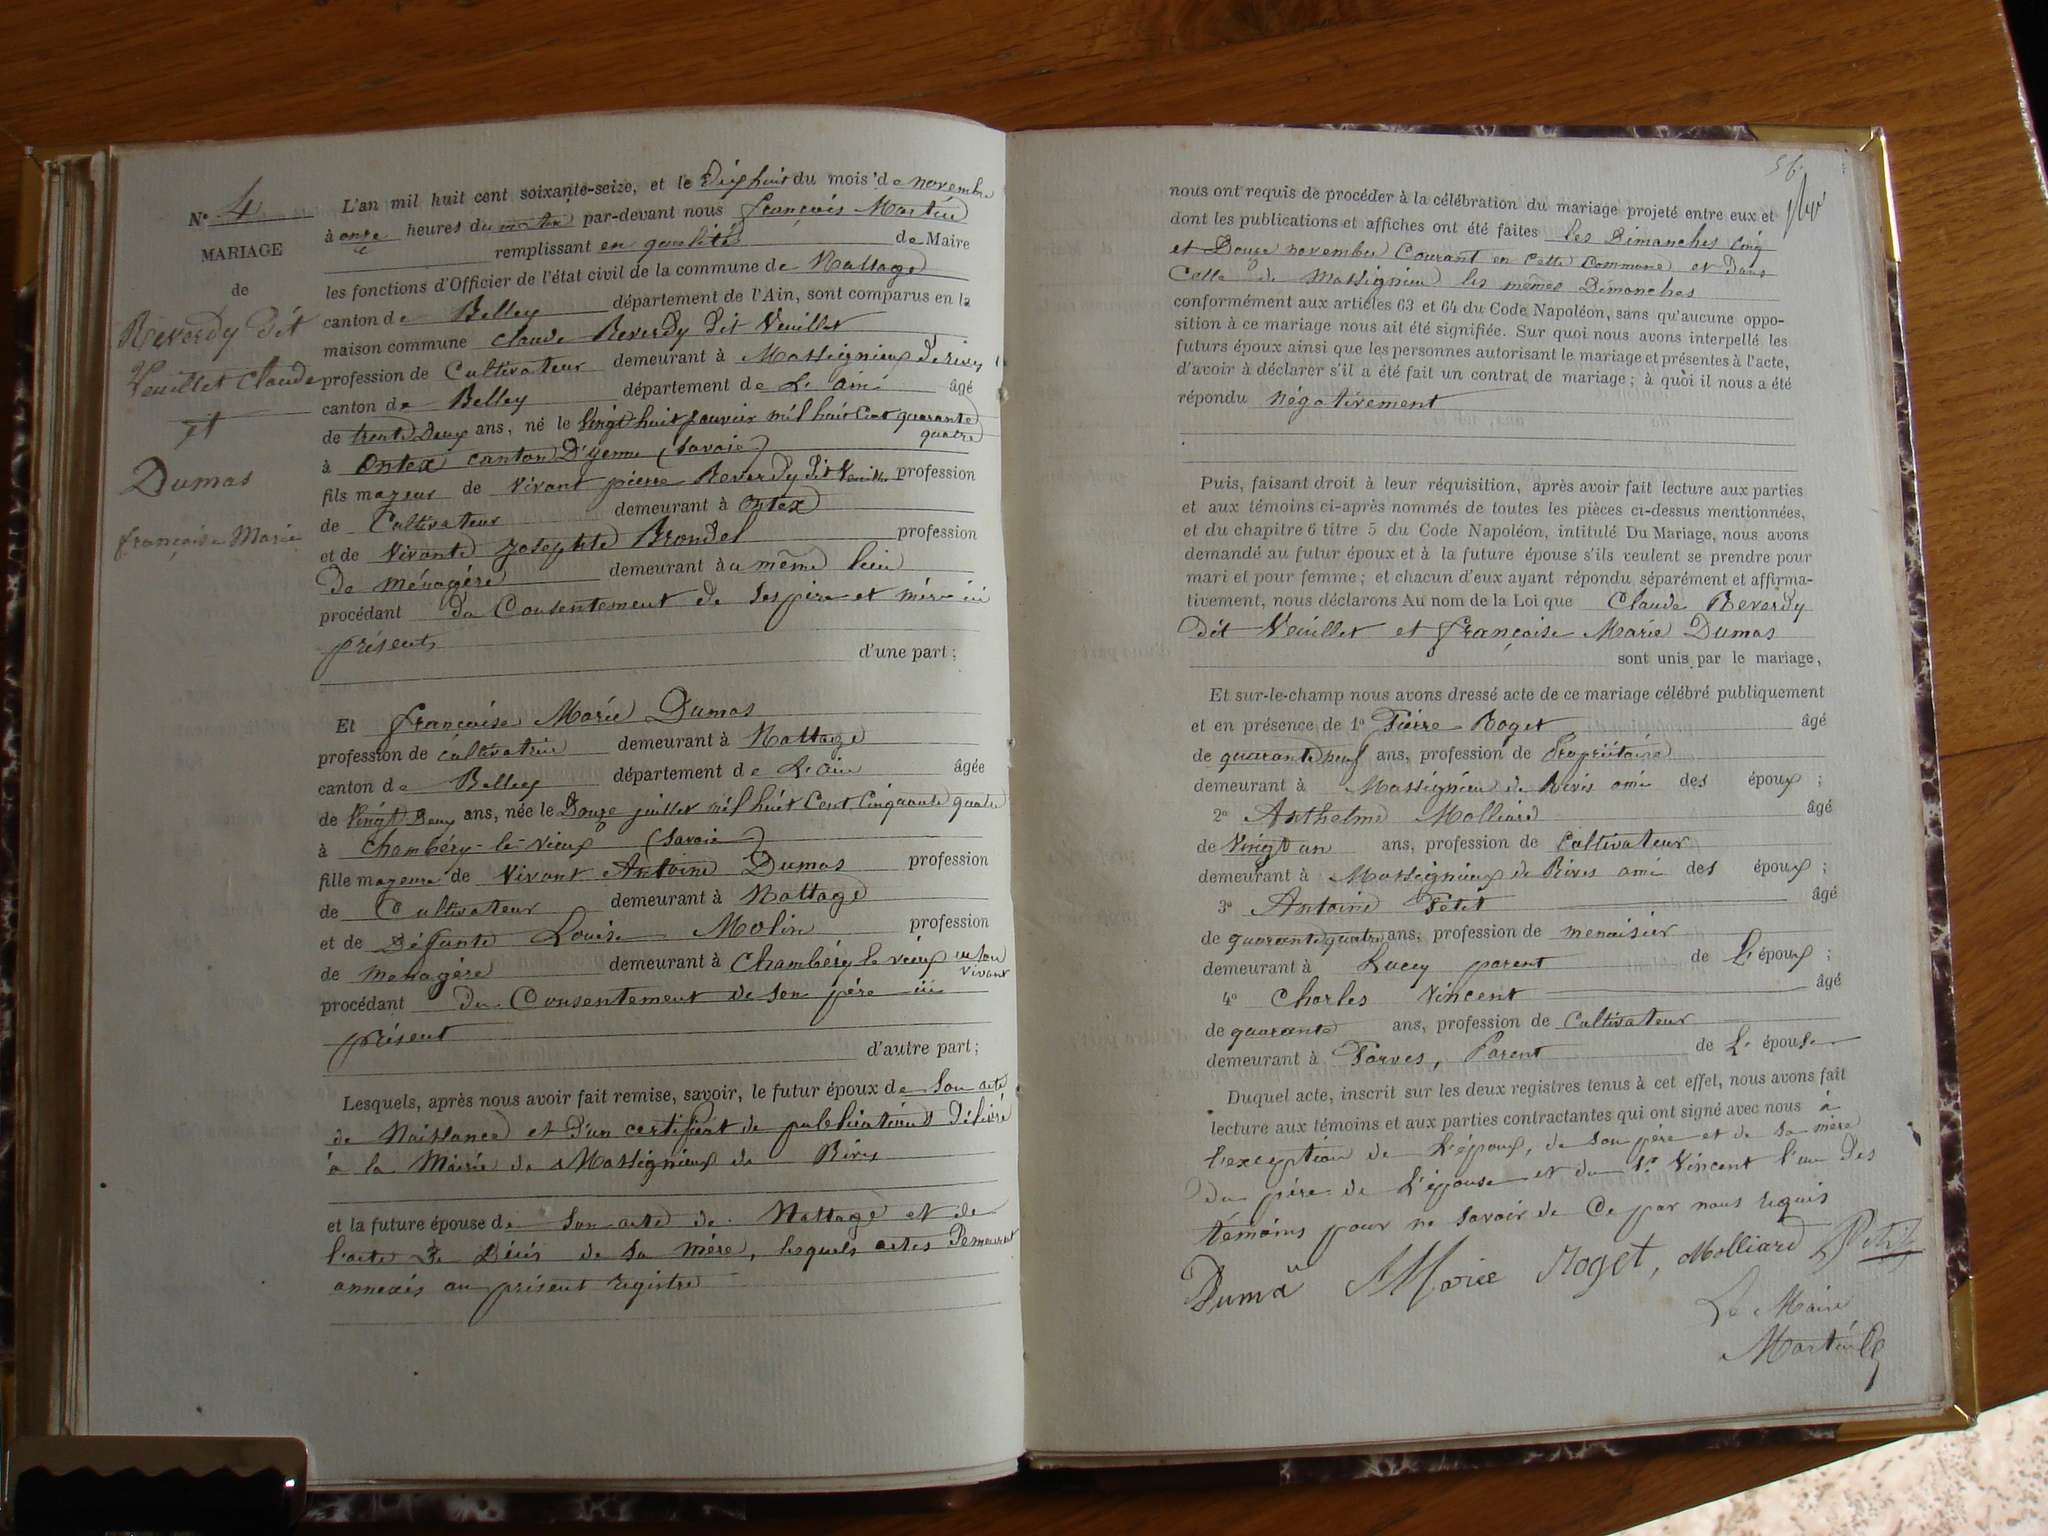 N° 4
MARIAGE
de
Reverdy dit
Veuillet Claude
et
Dumas
françoise Marie
L'an mil huit cent soixante-seize, et le dix huit du mois de novembre
à onze heures du matin par-devant nous françois Martin
remplissant en qualité de Maire
les fonctions d'Officier de l'état civil de la commune de Nattage
canton de Belley département de l'Ain, sont comparus en la
maison commune Claude Reverdy dit Veuillet
profession de Cultivateur demeurant à Massignieux de rives
canton de Belley département de L'ain âgé
de trente Deux ans, né le Vingt huit janvier mil huit Cent quarante
quatre
à Ontex canton D'yenne (Savoie)
fils majeur de Vivant pierre Reverdy dit Veuillet profession
de Cultivateur demeurant à Ontex
et de Vivante Josephte Brondel profession
de ménagère demeurant au même lieu
procédant du Consentement de Ses père et mère ici
présents
d'une part ;
Et françoise Marie Dumas
profession de cultivatrice demeurant à Nattage
canton de Belley département de L'ain âgée
de Vingt Deux ans, née le Douze juillet mil huit Cent Cinquante quatre
à Chambéry-le-vieux (Savoie)
fille majeure de Vivant Antoine Dumas profession
de Cultivateur demeurant à Nattage
et de Défunte Louise Molin profession
de menagère demeurant à Chambéry le vieux en son
vivant
procédant du Consentement de Son père ici
présent
d'autre part ;
Lesquels, après nous avoir fait remise, savoir, le futur époux de Son acte
de Naissance et d'un certificat de publications délivré
à la Mairie de Massignieux de Rives
et la future épouse de Son acte de Nattage et de
l'acte de Décès de Sa mère, lesquels actes Demeurent
annexés au présent registre
56
nous ont requis de procéder à la célébration du mariage projeté entre eux et
dont les publications et affiches ont été faites les Dimanches Cinq
et Douze novembre Courant en Cette Commune et dans
Celle de Massignieu les mêmes Dimanches
conformément aux articles 63 et 64 du Code Napoléon, sans qu'aucune oppo-
sition à ce mariage nous ait été signifiée. Sur quoi nous avons interpellé les
futurs époux ainsi que les personnes autorisant le mariage et présentes à l'acte,
d'avoir à déclarer s'il a été fait un contrat de mariage ; à quoi il nous a été
répondu négativement
Puis, faisant droit à leur réquisition, après avoir fait lecture aux parties
et aux témoins ci-après nommés de toutes les pièces ci-dessus mentionnées,
et du chapitre 6 titre 5 du Code Napoléon, intitulé Du Mariage, nous avons
demandé au futur époux et à la future épouse s'ils veulent se prendre pour
mari et pour femme ; et chacun d'eux ayant répondu séparément et affirma-
tivement, nous déclarons Au nom de la Loi que Claude Reverdy
dit Veuillet et françoise Marie Dumas
sont unis par le mariage,
Et sur-le-champ nous avons dressé acte de ce mariage célébré publiquement
et en présence de 1° Pierre Roget âgé
de quarante neuf ans, profession de Propriétaire
demeurant à Massignieu de Rives ami des époux ;
2° Anthelme Molliard âgé
de Vingt un ans, profession de Cultivateur
demeurant à Massignieux de Rives ami des époux ;
3° Antoine Petit âgé
de quarante quatre ans, profession de menuisier
demeurant à Lucey parent de L'époux ;
4° Charles Vincent âgé
de quarante ans, profession de Cultivateur
demeurant à Parves, Parent de L'épouse
Duquel acte, inscrit sur les deux registres tenus à cet effet, nous avons fait
lecture aux témoins et aux parties contractantes qui ont signé avec nous à
l'exception de L'époux, de son père et de sa mère
du père de L'épouse et du Sr Vincent l'un des
témoins pour ne savoir de Ce par nous requis
Duma Marie Roget, Molliard Petit
Le Maire
Martin